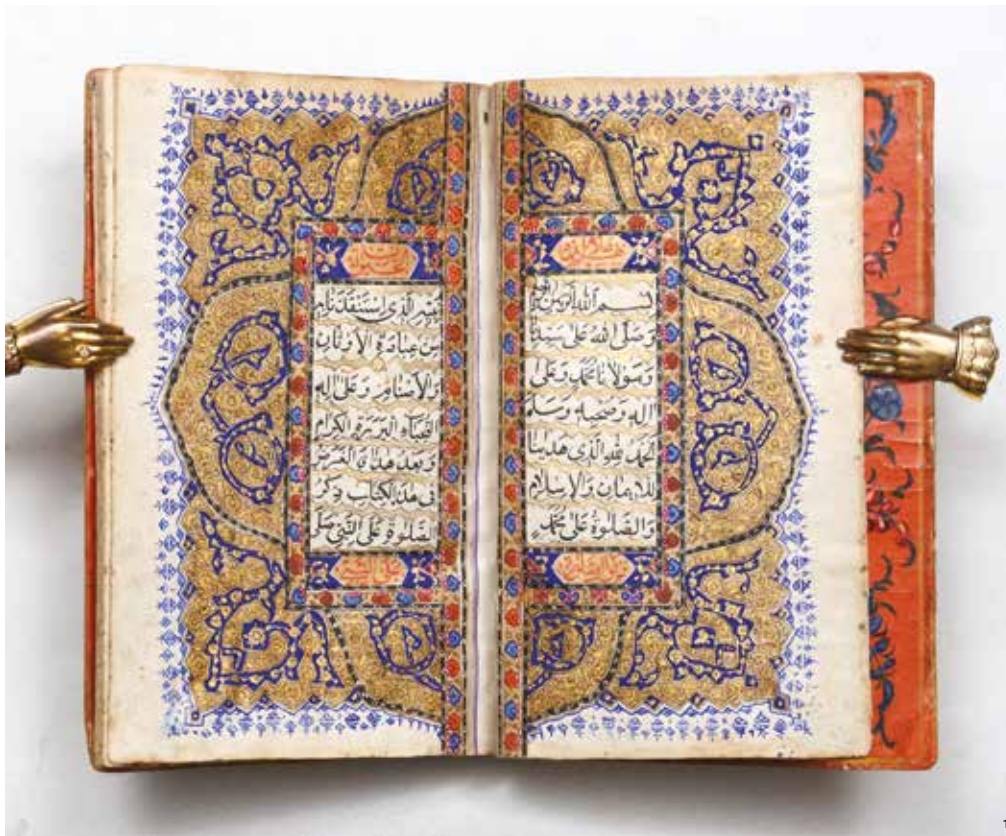 بسم الله الرحمن الرحيم
وَصَلَّى اللهُ عَلَى سَيِّدِنَا
وَمَوْلَانَا مُحَمَّدٍ وَعَلَى
اٰلِهِ وَصَحْبِهِ وَسَلَّمَ
الحَمْدُ لِلهِ الَّذِى هَدٰينَا
لِلْاِيمَانِ وَالْاِسْلَامِ
وَالصَّلٰوةُ عَلَى مُحَمَّدٍ
الَّذِى اسْتَنْقَذَنَا
مِنْ عِبَادَةِ الْاَوْثَانِ
وَالْاَصْنَامِ وَعَلَى اٰلِهِ
النُّجَبَاءِ الْبَرَرَةِ الْكِرَامِ
وَبَعْدَ هٰذَا فَالْغَرَضُ
فِى هٰذَا الْكِتَابِ ذِكْرُ
الصَّلٰوةِ عَلَى النَّبِيِّ صَلَّى
على النبي